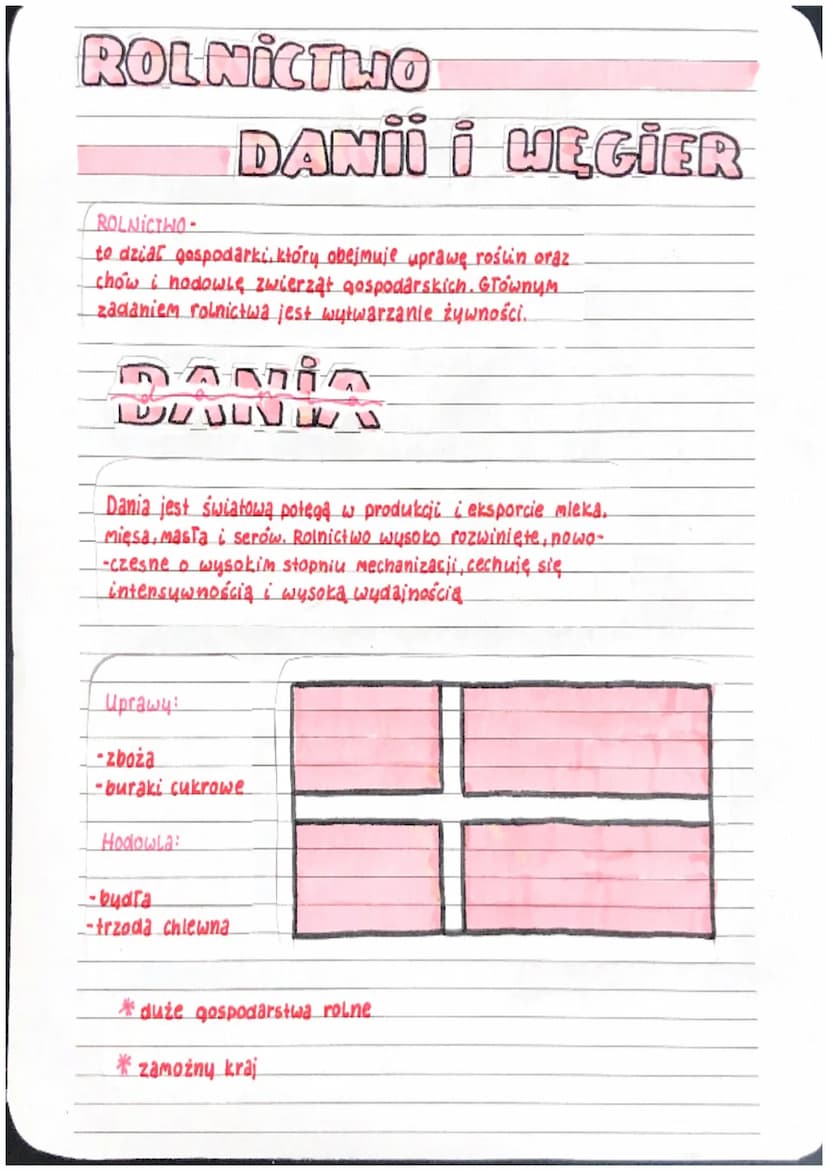 ROLNiCTWO
DANii i WĘGiER
ROLNiCTWO-
to dział gospodarki, który obejmuje uprawę roślin oraz
chów i hodowlę zwierząt gospodarskich. Głównym
zadaniem rolnictwa jest wytwarzanie żywności.
DANiA
dania
Dania jest światową potęgą w produkcji i eksporcie mleka,
mięsa, masła i serów. Rolnictwo wysoko rozwinięte, nowo-
-czesne o wysokim stopniu mechanizacji, cechuje się
intensywnością i wysoką wydajnością
Uprawy:
-zboża
-buraki cukrowe
Hodowla:
-bydła
-trzoda chlewna
* duże gospodarstwa rolne
* zamożny kraj